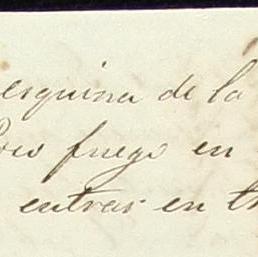 esquina de la
fuego en
entrar en